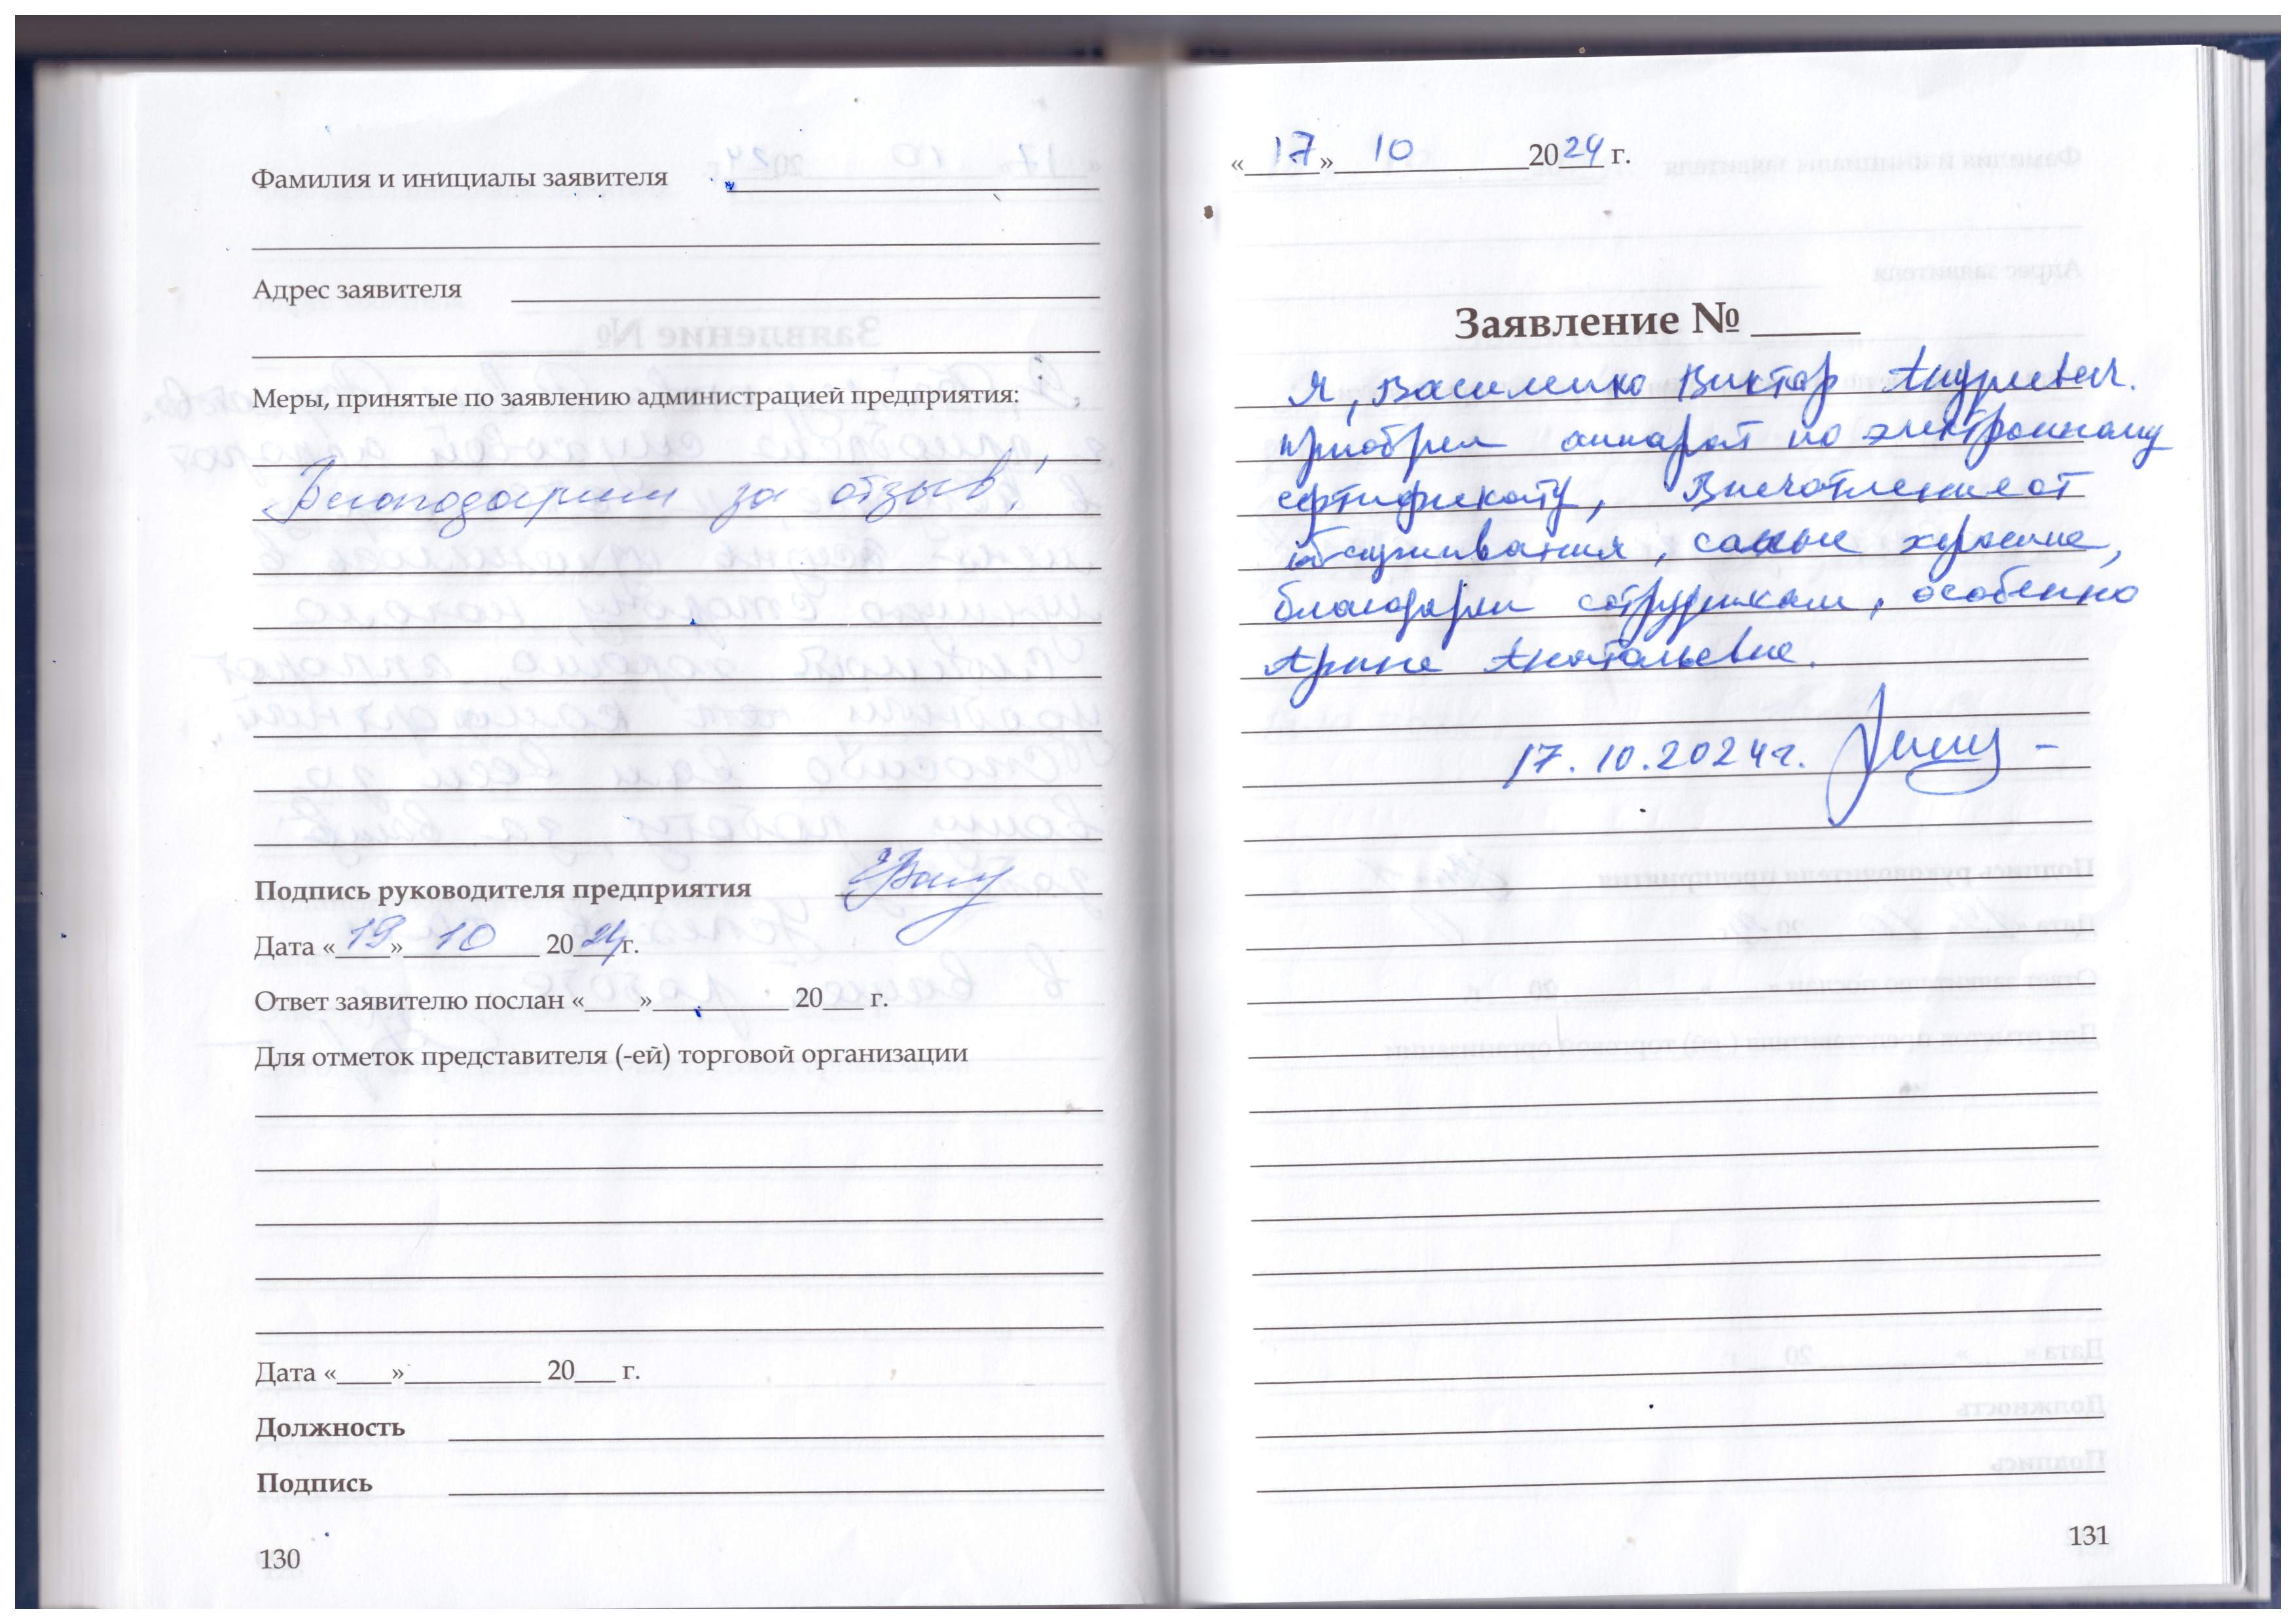 Фамилия и инициалы заявителя
Адрес заявителя
Меры, принятые по заявлению администрацией предприятия:
Благодарим за отзыв!
Подпись руководителя предприятия
Дата «19» 10 2024г.
Ответ заявителю послан «____»__________ 20___ г.
Для отметок представителя (-ей) торговой организации
Дата «____»__________ 20___ г.
Должность
Подпись
130
«17» 10 2024 г.
Заявление № _____
Я, Василенко Виктор Андреевич.
приобрел аппарат по электронному
сертификату, Впечатление от
обслуживания, самые хорошие,
благодарен сотрудникам, особенно
Арине Анатольевне.
17.10.2024г.
131